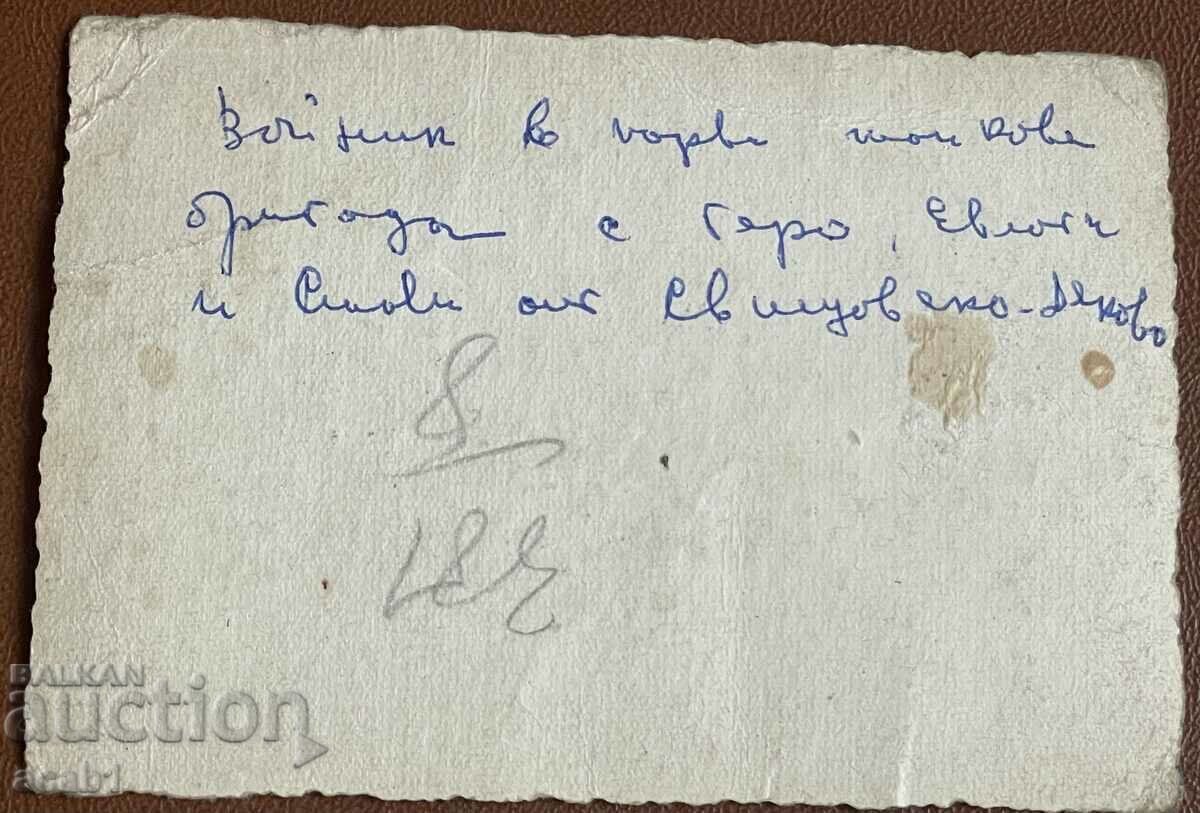 Войник в първа танкова
бригада с Геро, Евлоги
и Славе от Свищовско-Деково
8
BALKAN
auction
arab1